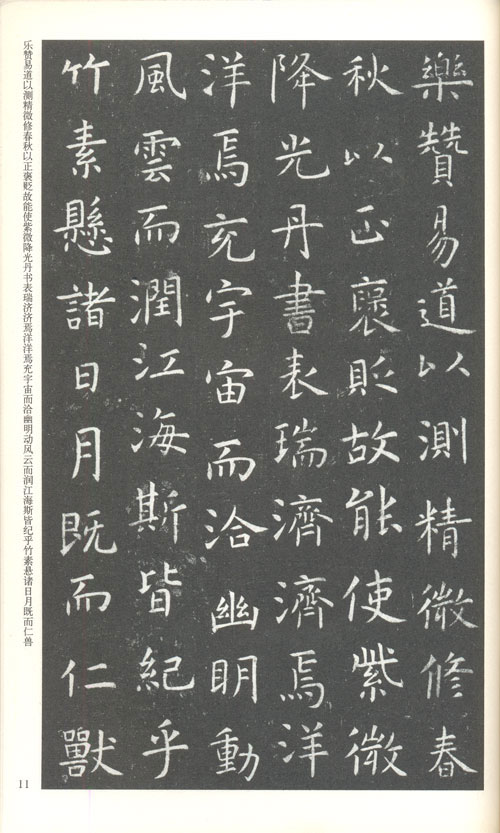 樂贊易道以測精微修春
秋以正褒貶故能使紫微
降光丹書表瑞濟濟焉洋
洋焉充宇宙而洽幽明動
風雲而潤江海斯皆紀乎
竹素懸諸日月既而仁獸
乐赞易道以测精微修春秋以正褒贬故能使紫微降光丹书表瑞济济焉洋洋焉充宇宙而洽幽明动风云而润江海斯皆纪乎竹素悬诸日月既而仁兽
11